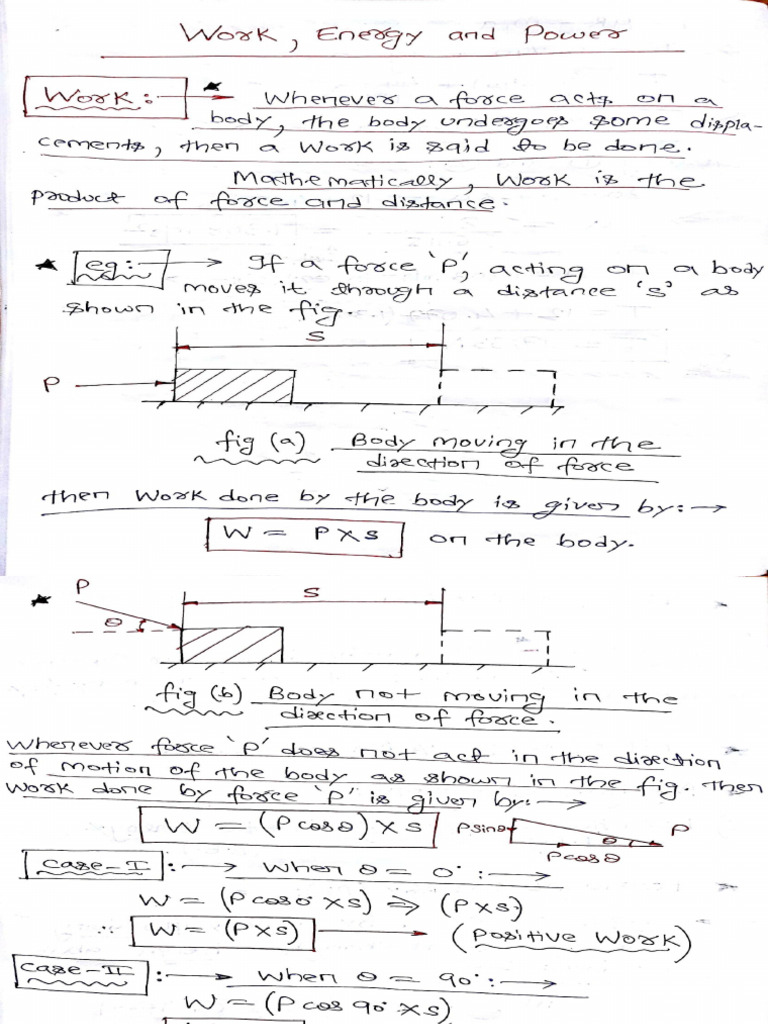 Work, Energy and Power
Work:- → ★ Whenever a force acts on a
body, the body undergoes some displa-
cements, then a work is said to be done.
Mathematically, work is the
product of force and distance.
★ eg:- → If a force 'P', acting on a body
moves it through a distance 's' as
shown in the fig.
S
P
fig (a) Body moving in the
direction of force
then work done by the body is given by:→
W = P×s on the body.
★ P
S
θ
fig (b) Body not moving in the
direction of force.
Whenever force 'P' does not act in the direction
of motion of the body as shown in the fig. then
work done by force 'P' is given by:→
W = (P cosθ) × s
Psinθ θ P
Pcosθ
Case-I :→ When θ = 0° :→
W = (P cos0° × s) ⇒ (P×s)
∴ W = (P×s) → (Positive Work)
Case-II :→ When θ = 90° :→
W = (P cos 90° × s)